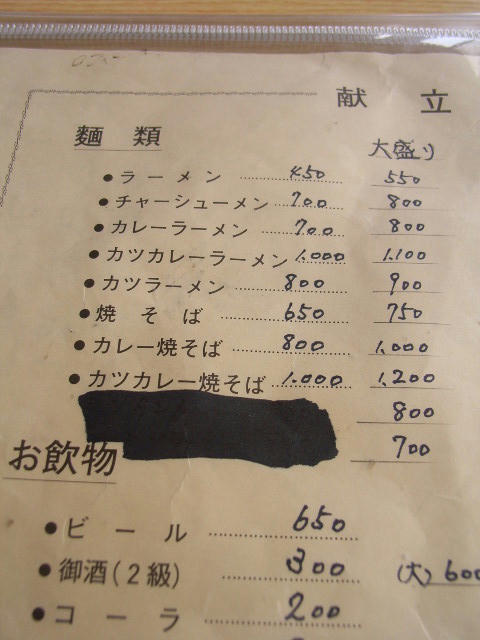 献 立
麺 類 大盛り
●ラーメン 450 550
●チャーシューメン 700 800
●カレーラーメン 700 800
●カツカレーラーメン 1.000 1.100
●カツラーメン 800 900
●焼そば 650 750
●カレー焼そば 800 1.000
●カツカレー焼そば 1.000 1.200
800
700
お飲物
●ビール 650
●御酒(2級) 300 (大)600
●コーラ 200